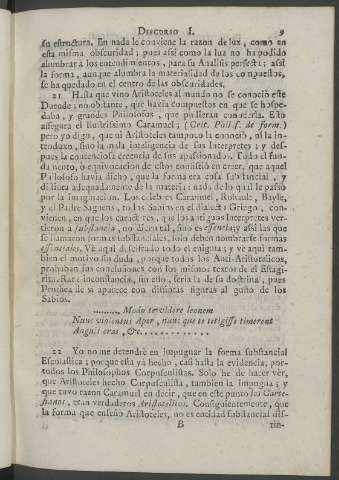 DISCURSO I. 9
su estructura. En nada le conviene la razon de luz, como en
esta misma obscuridad; pues assi como la luz no ha podido
alumbrar a los entendimientos, para su Analisis perfecta; assi
la forma, aunque alumbra la materialidad de los compuestos,
se ha quedado en el centro de las obscuridades.
21 Hasta que vino Aristoteles al mundo no se conoció este
Duende; no obstante, que havia compuestos en que se hospe-
daba, y grandes Philosofos, que pudieran conocerla. Esto
assegura el Ilustrissimo Caramuel; (Crit. Phil. f. de form.)
pero yo digo, que ni Aristoteles tampoco la conoció, ni la in-
troduxo, sino la mala inteligencia de sus Interpretes; y des-
pues la contenciosa creencia de sus apassionados. Todo el fun-
damento, ò equivocacion de estos consistió en creer, que aquel
Philosofo havia dicho, que la forma era cosa substancial, y
distinta adequadamente de la materia: nada de lo qual le passò
por la imaginacion. Los celebres Caramuel, Rohaule, Bayle,
y el Padre Saguens, todos Sabios en el dialecto Griego, con-
vienen, en que los caractères, que los antiguos Interpretes ver-
tieron à substancia, no dicen tal, sino es essencia; y assi las que
se llamaron formas substanciales, solo deben nombrarse formas
essenciales. Ve aqui descifrado todo el enigma; y ve aqui tam-
bien el motivo sin duda, porque todos los Anti-Aristotelicos,
probaban sus conclusiones con los mismos textos de el Estagi-
rita. Rara inconstancia, sin esto, seria la de su doctrina, pues
Prothea de sì aparece con distintas figuras al gusto de los
Sabios.
......... Modo te videre leonem
Nunc violentus Aper, nunc que te tetigisse timerent
Anguis eras, &c. ............
22 Yo no me detendrè en impugnar la forma substancial
Escolastica; porque està yà hecho, casi hasta la evidencia, por
todos los Philosophos Corpusculistas. Solo he de hacer vèr,
que Aristoteles hecho Corpusculista, tambien la impugna; y
que tuvo razon Caramuel en decir, que en este punto los Carte-
sianos, eran verdaderos Aristotelicos. Consiguientemente, que
la forma que enseñò Aristoteles, no es entidad substancial dis-
B tin-